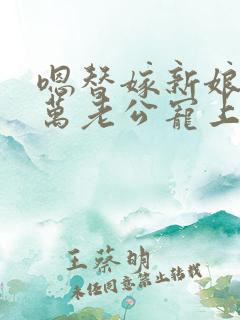 嗯替嫁新娘
萬老公寵上
王蔡明
未经同意禁止转载